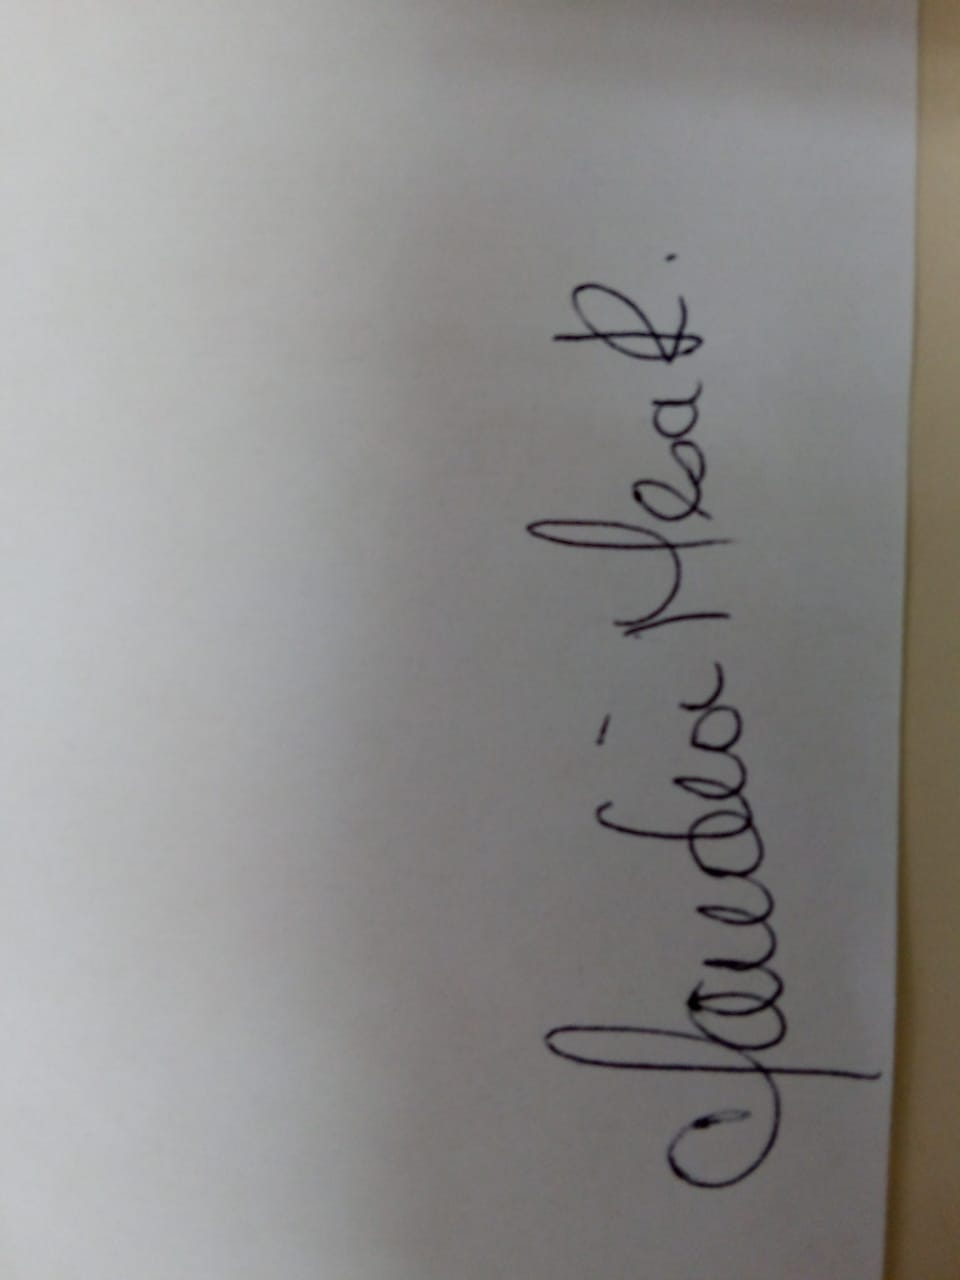 Claudia Mesa R.